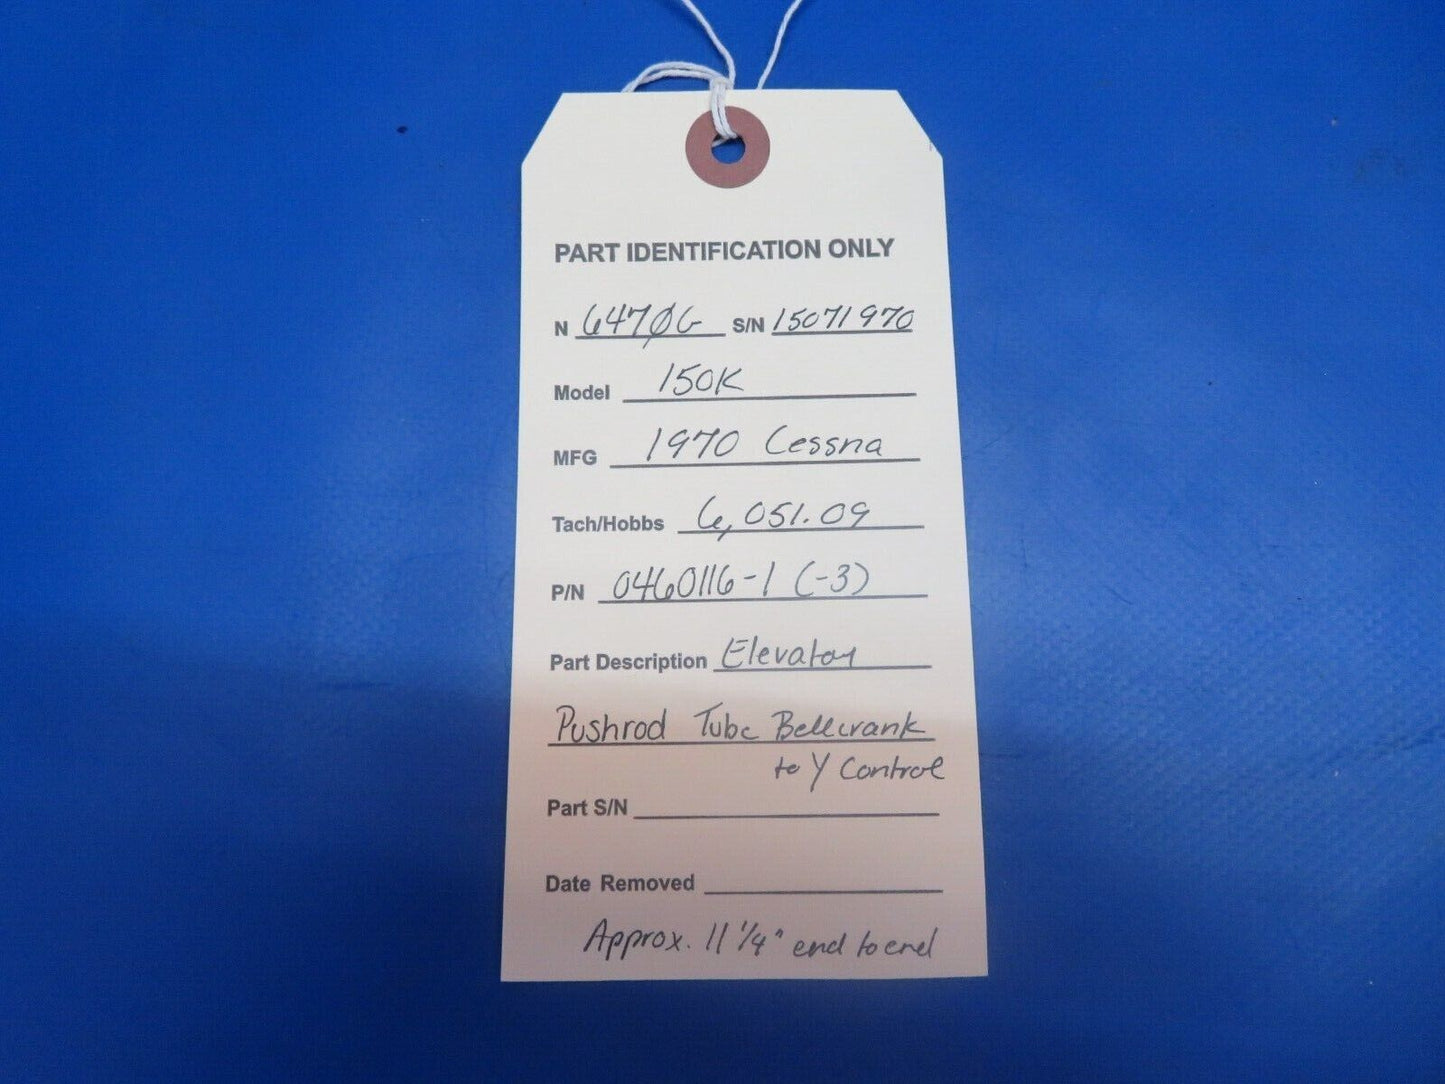 PART IDENTIFICATION ONLY
N 6470G S/N 15071970
Model 150K
MFG 1970 Cessna
Tach/Hobbs 6,051.09
P/N 0460116-1 (-3)
Part Description Elevator
Pushrod Tube Bellcrank
to Y Control
Part S/N
Date Removed
Approx. 11 1/4" end to end